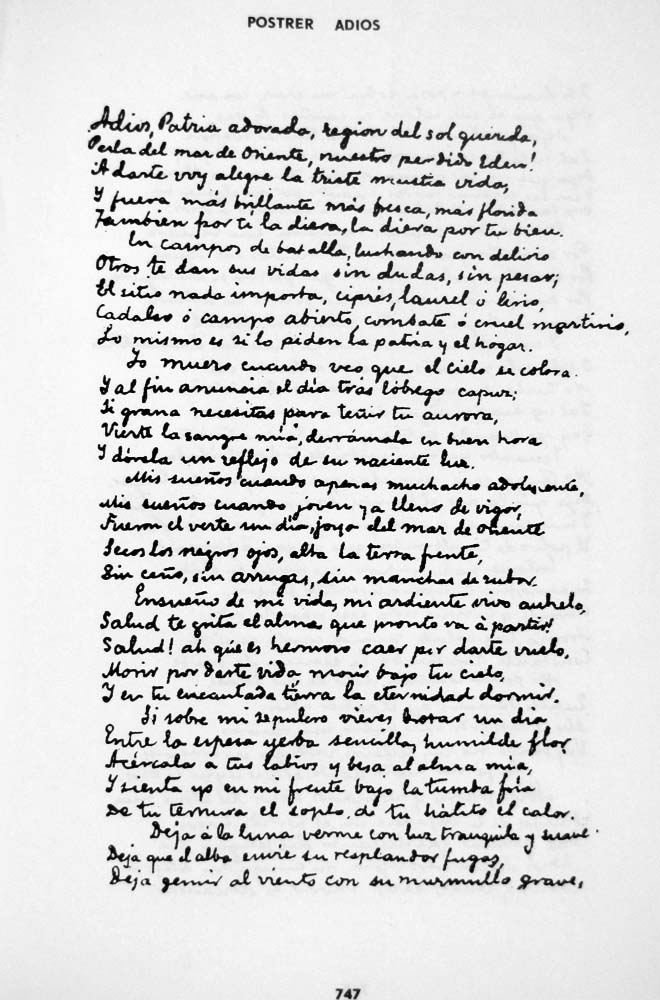 POSTRER ADIOS
Adios, Patria adorada, region del sol querida,
Perla del mar de Oriente, nuestro perdido Eden!
A darte voy alegre la triste mustia vida,
Y fuera más brillante más fresca, más florida
Tambien por tí la diera, la diera por tu bien.
En campos de batalla, luchando con delirio
Otros te dan sus vidas sin dudas, sin pesar;
El sitio nada importa, ciprés, laurel ó lirio,
Cadalso ó campo abierto, combate ó cruel martirio,
Lo mismo es si lo piden la patria y el hogar.
Yo muero cuando veo que el cielo se colora
Y al fin anuncia el día trás lóbrego capuz;
Si grana necesitas para teñir tu aurora,
Vierte la sangre mía, derrámala en buen hora
Y dórela un reflejo de su naciente luz.
Mis sueños cuando apenas muchacho adolescente,
Mis sueños cuando joven ya lleno de vigor,
Fueron el verte un día, joya del mar de oriente
Secos los negros ojos, alta la tersa frente,
Sin ceño, sin arrugas, sin manchas de rubor.
Ensueño de mi vida, mi ardiente vivo anhelo,
Salud te grita el alma que pronto va á partir!
Salud! ah que es hermoso caer por darte vuelo,
Morir por darte vida, morir bajo tu cielo,
Y en tu encantada tierra la eternidad dormir.
Si sobre mi sepulcro vieres brotar un dia
Entre la espesa yerba sencilla, humilde flor,
Acércala a tus labios y besa al alma mia,
Y sienta yo en mi frente bajo la tumba fria
De tu ternura el soplo, de tu hálito el calor.
Deja á la luna verme con luz tranquila y suave
Deja que el alba envie su resplandor fugaz,
Deja gemir al viento con su murmullo grave,
747